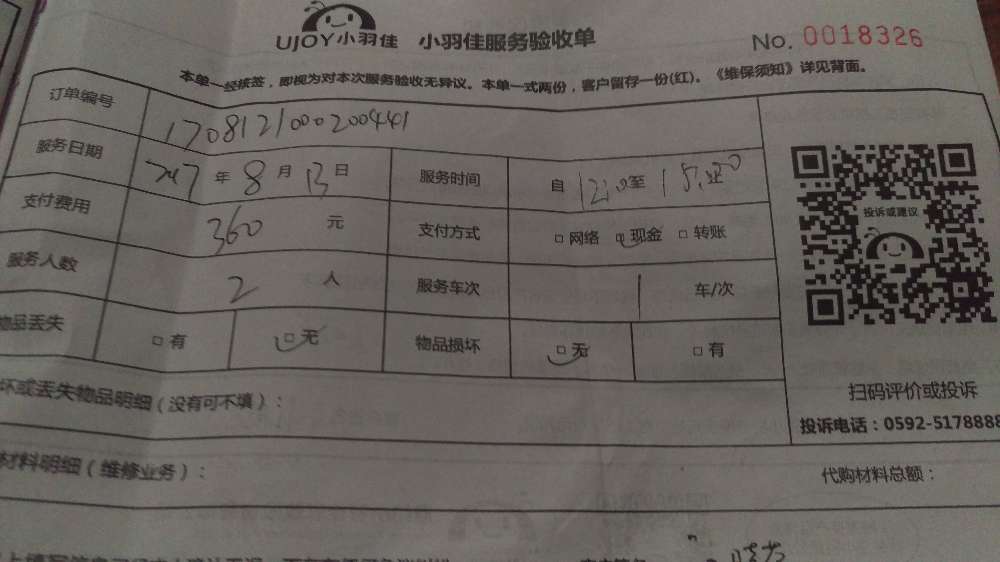 UJOY小羽佳 小羽佳服务验收单 No. 0018326
本单一经核签，即视为对本次服务验收无异议。本单一式两份，客户留存一份(红)。《维保须知》详见背面。
订单编号 1708121000200441
服务日期 2017年8月13日 服务时间 自12:00至
支付费用 360元 支付方式 □网络 □现金 □转账
投诉或建议
服务人数 2人 服务车次 1 车/次
物品丢失 □有 □无 物品损坏 □无 □有
坏或丢失物品明细（没有可不填）：
扫码评价或投诉
投诉电话：0592-5178888
材料明细（维修业务）： 代购材料总额：